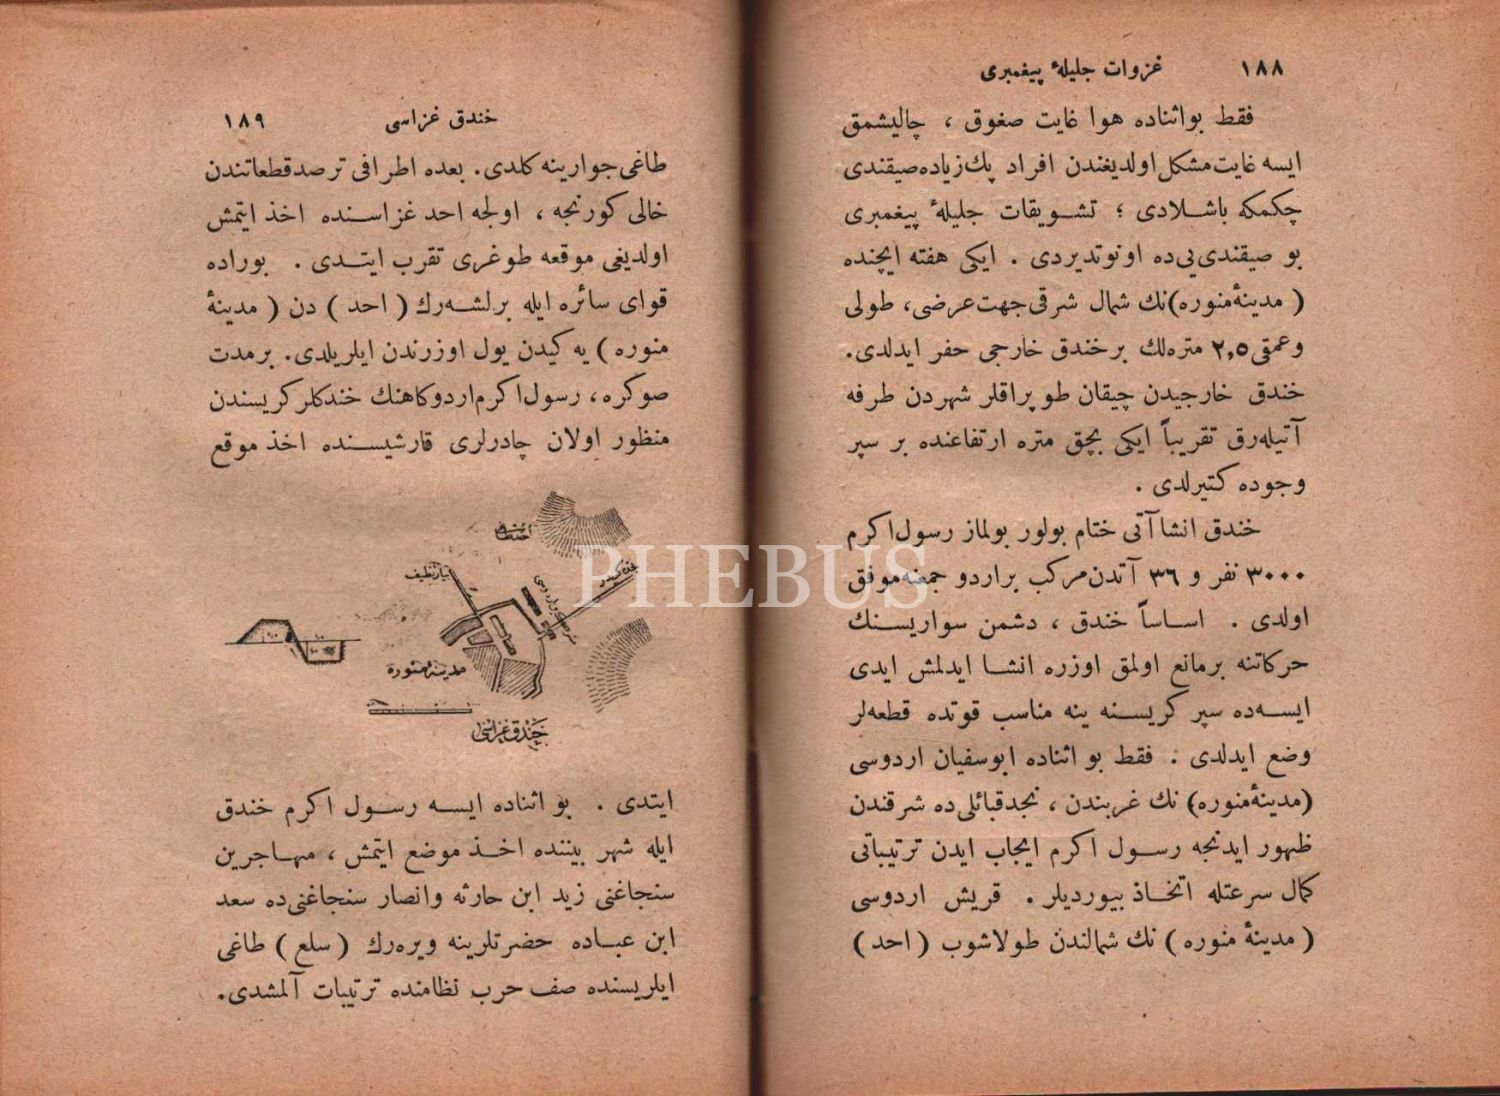 ١٨٨ غزوات جليلهٔ پيغمبری
فقط بواثناده هوا غايت صغوق ، چاليشمق
ايسه غايت مشكل اولديغندن افراد پك زياده صيقندی
چكمكه باشلادی ؛ تشويقات جليلهٔ پيغمبری
بو صيقندی يی ده اونوتديردی . ايكی هفته ايچنده
( مدينهٔ منوره ) نك شمال شرقی جهت عرضی ، طولی
وعمقی ٢,٥ متره لك بر خندق خارجی حفر ايدلدی .
خندق خارجيدن چيقان طوپراقلر شهردن طرفه
آتيله رق تقريباً ايكی بچق متره ارتفاعنده بر سپر
وجوده كتيرلدی .
خندق انشاآتی ختام بولور بولماز رسول اكرم
٣٠٠٠ نفر و ٣٦ آتدن مركب بر اردو جمعنه موفق
اولدی . اساساً خندق ، دشمن سواريسنك
حركاتنه بر مانع اولمق اوزره انشا ايدلمش ايدی
ايسه ده سپر كريسنه ينه مناسب قوتده قطعه لر
وضع ايدلدی . فقط بو اثناده ابوسفيان اردوسی
( مدينهٔ منوره ) نك غربندن ، نجد قبائلی ده شرقندن
ظهور ايدنجه رسول اكرم ايجاب ايدن ترتيباتی
كمال سرعتله اتخاذ بيورديلر . قريش اردوسی
( مدينهٔ منوره ) نك شمالندن طولاشوب ( احد )
خندق غزاسی ١٨٩
طاغی جوارينه كلدی . بعده اطرافی ترصد قطعاتندن
خالی كورنجه ، اولجه احد غزاسنده اخذ ايتمش
اولديغی موقعه طوغری تقرب ايتدی . بوراده
قوای سائره ايله برلشه رك ( احد ) دن ( مدينهٔ
منوره ) يه كيدن يول اوزرندن ايلريلدی . بر مدت
صوكره ، رسول اكرم اردوكاهنك خندكلر كريسندن
منظور اولان چادرلری قارشيسنده اخذ موقع
مدينهٔ منوره
خندق غزاسی
ايتدی . بو اثناده ايسه رسول اكرم خندق
ايله شهر بيننده اخذ موضع ايتمش ، مهاجرين
سنجاغنی زيد ابن حارثه وانصار سنجاغنی ده سعد
ابن عباده حضرتلرينه ويره رك ( سلع ) طاغی
ايلريسنده صف حرب نظامنده ترتيبات آلمشدی .
PHEBUS